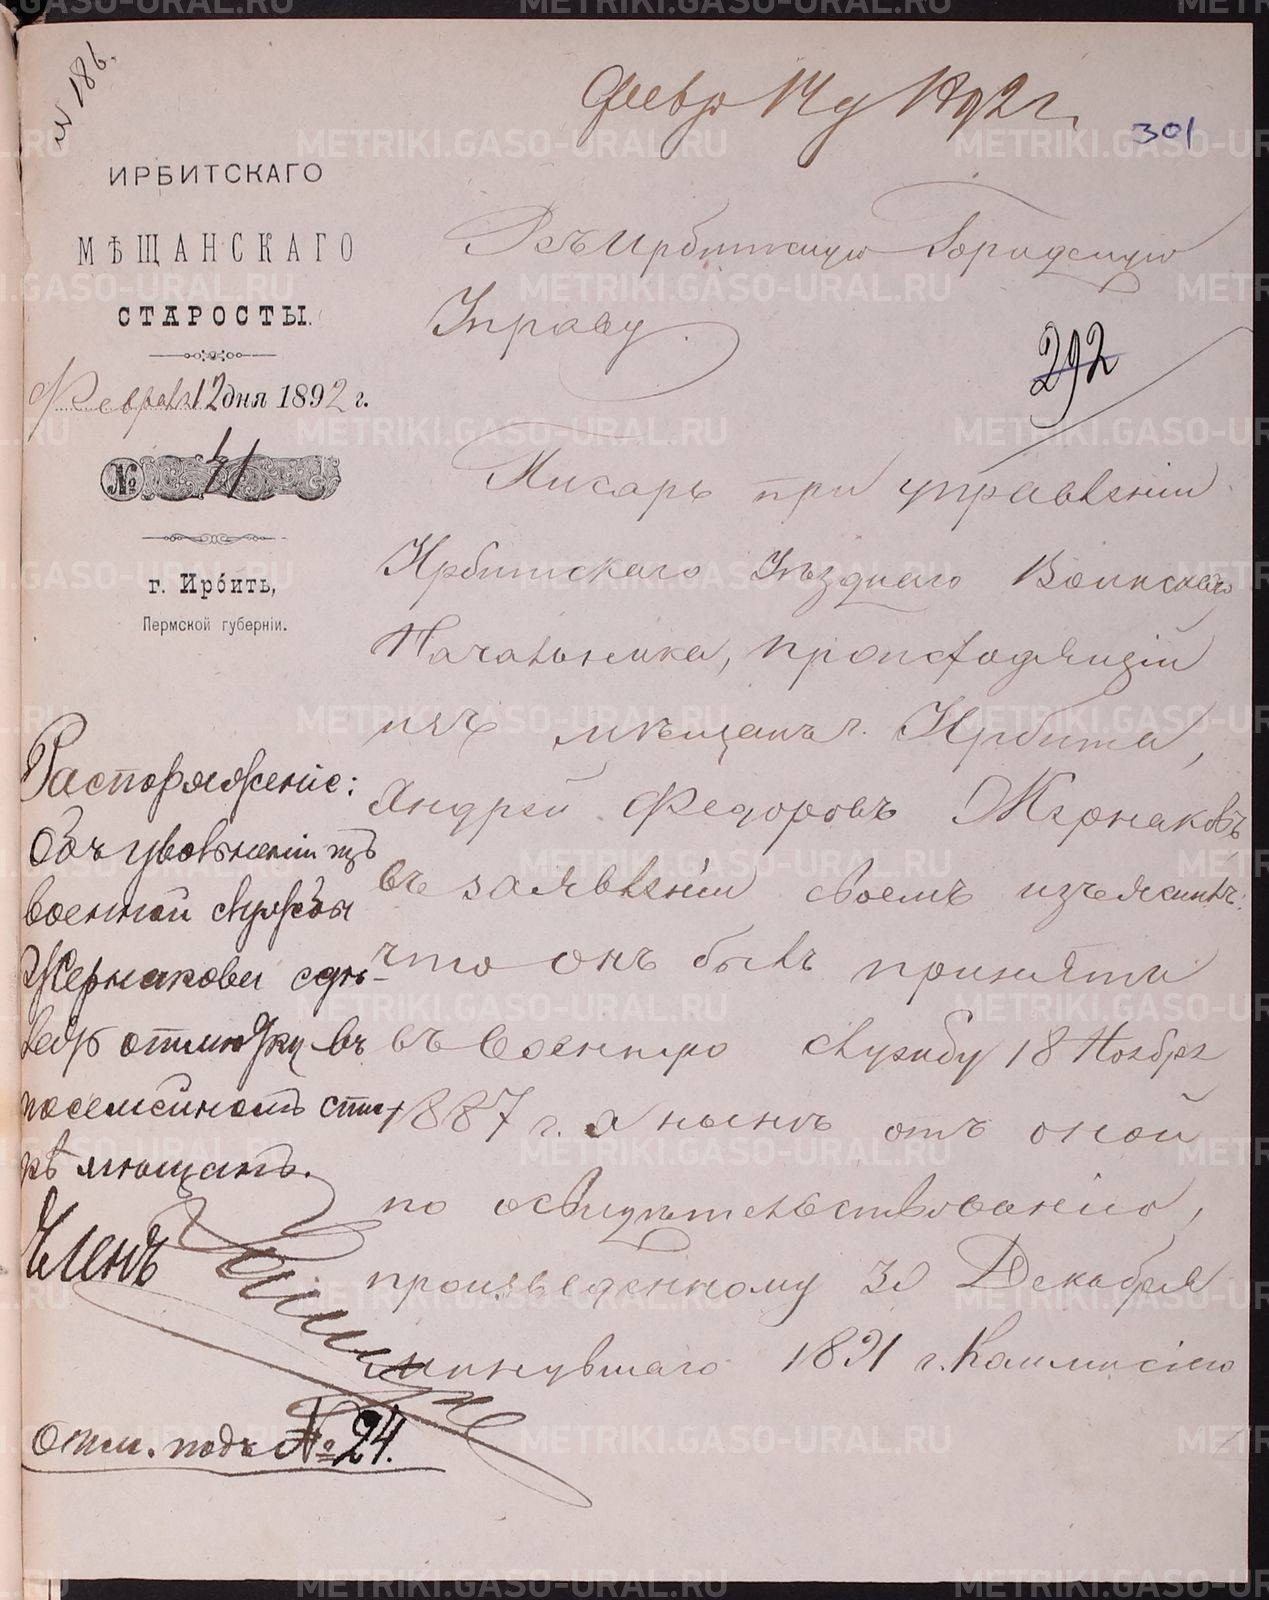 № 186.
Февр 14 д 1892 г.
301
ИРБИТСКАГО
МѢЩАНСКАГО
СТАРОСТЫ.
Февраля 12 дня 1892 г.
№ 41
г. Ирбить,
Пермской губернiи.
Въ Ирбитскую Городскую
Управу.
292
Писарь при управленiи
Ирбитскаго Уѣзднаго Воинскаго
Начальника, происходящiй
изъ мѣщанъ г. Ирбита,
Андрей Федоровъ Жернаковъ
въ заявленiи своемъ изъяснилъ:
что онъ былъ принятъ
въ военную службу 18 Ноября
1887 г. а нынѣ отъ оной
по освидѣтельствованiю,
произведенному 30 Декабря
минувшаго 1891 г. Коммисiею
Распоряженiе:
Объ увольненiи изъ
военной службы
Жернакова сдѣ-
лать отмѣтку въ
посемейномъ спис
кѣ мѣщанъ.
Членъ
Отм. подъ № 24.
METRIKI.GASO-URAL.RU